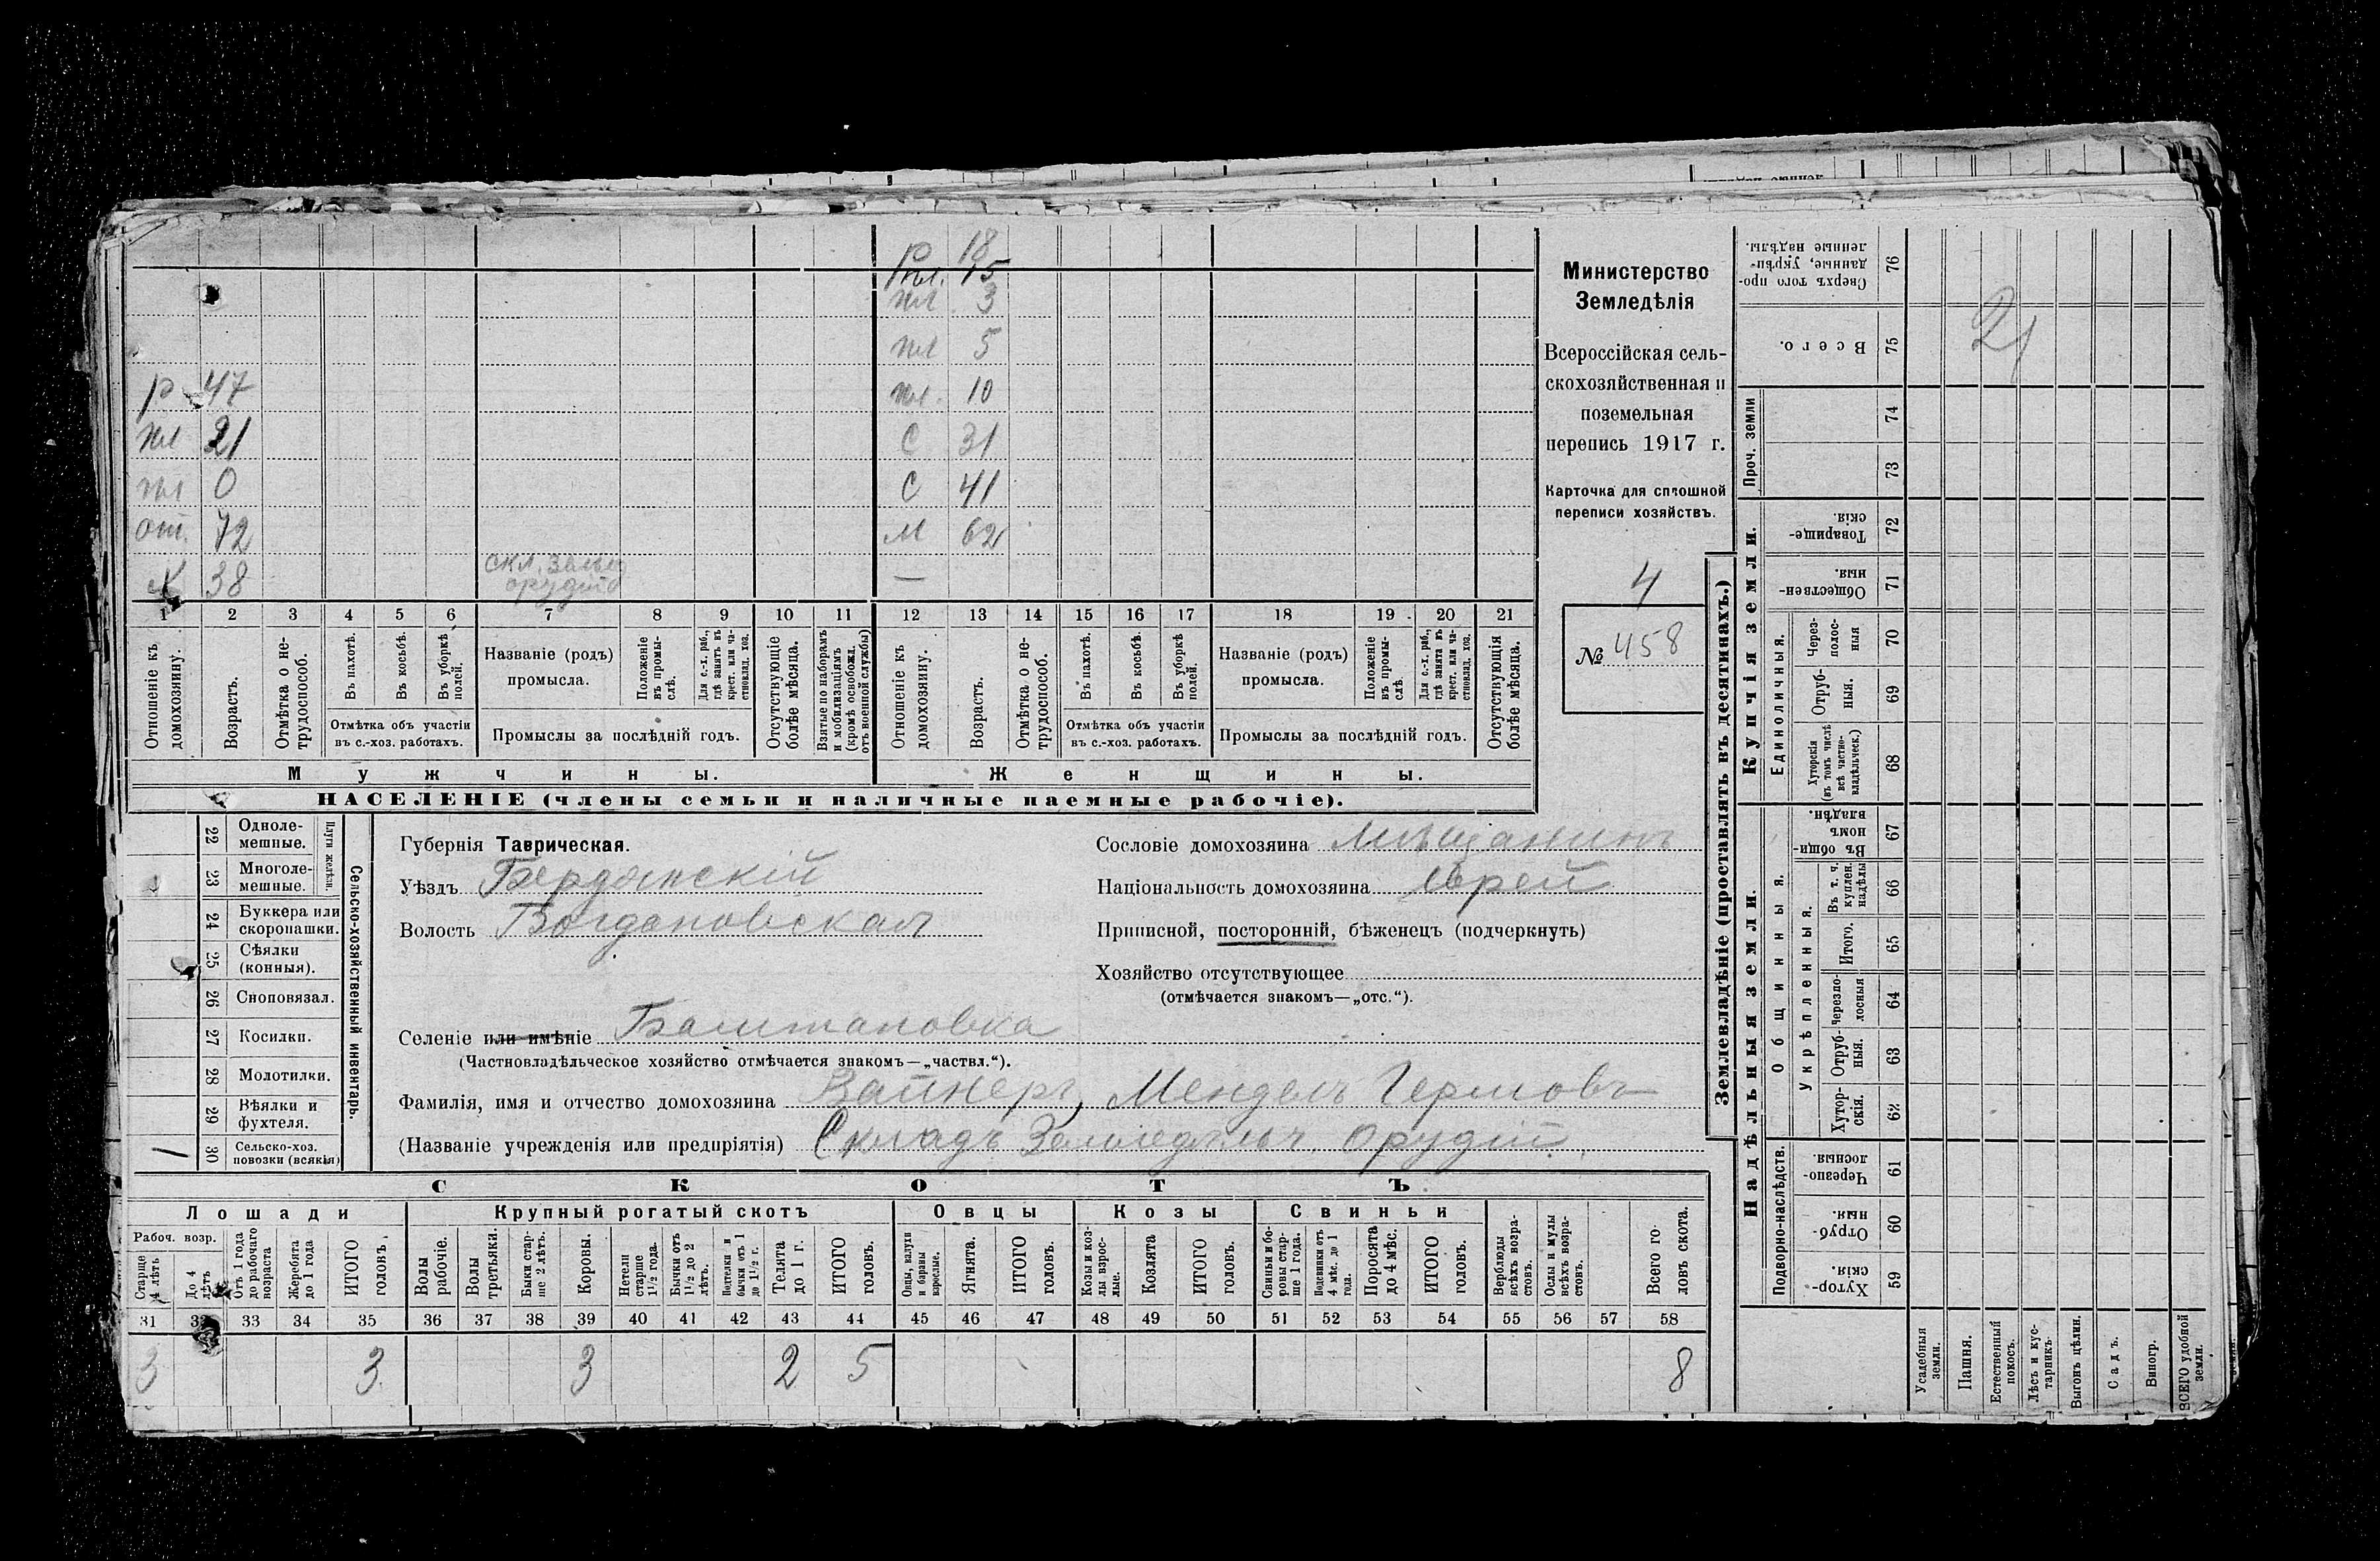 р 18
пл. 15
пл 3
пл 5
р 47 пл. 10
пл 21 С 31
пл 0 С 41
от. 72 М 62
Х 38 скл. землед орудій —
1 2 3 4 5 6 7 8 9 10 11 12 13 14 15 16 17 18 19 20 21
Отношеніе къ домохозяину.
Возрастъ.
Отмѣтка о не-
трудоспособ.
Въ пахотѣ.
Въ косьбѣ.
Въ уборкѣ
полей.
Отмѣтка объ участіи
въ с.-хоз. работахъ.
Названіе (родъ)
промысла.
Положеніе
въ промы-
слѣ.
Для с.-х. раб.,
гдѣ занятъ въ
крест. или ча-
стновлад. хоз.
Промыслы за послѣдній годъ.
Отсутствующіе
болѣе мѣсяца.
Взятые по наборамъ
и мобилизаціямъ
(кромѣ освобожд.
отъ военной службы)
Отношеніе къ
домохозяину.
Возрастъ.
Отмѣтка о не-
трудоспособ.
Въ пахотѣ.
Въ косьбѣ.
Въ уборкѣ
полей.
Отмѣтка объ участіи
въ с.-хоз. работахъ.
Названіе (родъ)
промысла.
Положеніе
въ промы-
слѣ
Для с.-х. раб.,
гдѣ занята въ
крест. или ча-
стновлад. хоз.
Промыслы за послѣдній годъ.
Отсутствующія
болѣе мѣсяца.
Мужчины.
Женщины.
НАСЕЛЕНІЕ (члены семьи и наличные наемные рабочіе).
Министерство
Земледѣлія
Всероссійская сель-
скохозяйственная и
поземельная
перепись 1917 г.
Карточка для сплошной
переписи хозяйствъ.
4
№ 458
Сельско-хозяйственный инвентарь.
Плуги желѣзн.
22 Одноле-
мешные.
23 Многоле-
мешные.
24 Буккера или
скоропашки.
25 Сѣялки
(конныя).
26 Сноповязал.
27 Косилки.
28 Молотилки.
29 Вѣялки и
фухтеля.
/ 30 Сельско-хоз.
повозки (всякія)
Губернія Таврическая.
Уѣздъ Бердянскій
Волость Богдановская
Селеніе или имѣніе Баштановка
(Частновладѣльческое хозяйство отмѣчается знакомъ—„частвл.“).
Фамилія, имя и отчество домохозяина Вайнеръ, Мендель Гершовъ
(Названіе учрежденія или предпріятія) Складъ Земледѣльч. Орудій
Сословіе домохозяина Мѣщанинъ
Національность домохозяина Еврей
Приписной, посторонній, бѣженецъ (подчеркнуть)
Хозяйство отсутствующее
(отмѣчается знакомъ—„отс.“).
СКОТЪ
Лошади
Рабоч. возр.
Старше
4 лѣтъ
До 4
лѣтъ
Отъ 1 года
до рабочаго
возраста
Жеребята
до 1 года
ИТОГО
головъ.
Крупный рогатый скотъ
Волы
рабочіе.
Волы
третьяки.
Быки стар-
ше 2 лѣтъ.
Коровы.
Нетели
старше
1½ года.
Бычки отъ
1½ до 2
лѣтъ.
Подтелки и
бычки отъ 1
до 1½ г.
Телята
до 1 г.
ИТОГО
головъ.
Овцы
Овцы, валухи
и бараны
взрослые.
Ягнята.
ИТОГО
головъ.
Козы
Козы и коз-
лы взрос-
лые.
Козлята
ИТОГО
головъ.
Свиньи
Свиньи и бо-
ровы стар-
ше 1 года.
Подсвинки отъ
4 мѣс. до 1
года.
Поросята
до 4 мѣс.
ИТОГО
головъ.
Верблюды
всѣхъ возра-
стовъ.
Ослы и мулы
всѣхъ возра-
стовъ.
Всего го-
ловъ скота.
31 32 33 34 35 36 37 38 39 40 41 42 43 44 45 46 47 48 49 50 51 52 53 54 55 56 57 58
3 3 3 2 5 8
Землевладѣніе (проставлять въ десятинахъ.)
Надѣльныя земли.
Купчія земли.
Проч. земли
Подворно-наслѣдств.
Общинныя.
Укрѣпленныя.
Единоличныя.
Сверхъ того про-
данные, укрѣп-
ленные надѣлы.
76
Всего.
75
21
74
73
Товарище-
скія.
72
Обществен-
ныя.
71
Через-
полос-
ныя
70
Отруб-
ныя.
69
Хуторскія
(въ томъ числѣ
всѣ частно-
владѣльческ.)
68
Въ общин-
номъ
владѣн.
67
Въ т. ч.
куплен.
надѣлы
66
Итого.
65
Черезпо-
лосныя
64
Отруб-
ныя.
63
Хутор-
скія.
62
Черезпо-
лосныя.
61
Отруб-
ныя.
60
Хутор-
скія.
59
Усадебныя
земли.
Пашня.
Естественный
покосъ.
Лѣсъ и кус-
тарникъ
Выгонъ цѣлин.
Садъ.
Виногр.
ВСЕГО удобной
земли.